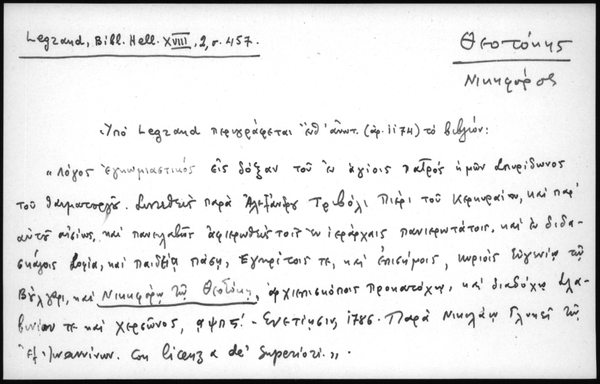 Legrand, Bibl. Hell. XVIII, 2, σ. 457.
Θεοτόκης
Νικηφόρος
Ὑπὸ Legrand περιγράφεται ἐνθ' ἀνωτ. (ἀρ. 1174) τὸ βιβλίον:
«Λόγος ἐγκωμιαστικὸς εἰς δόξαν τοῦ ἐν ἁγίοις Πατρὸς ἡμῶν Σπυρίδωνος
τοῦ θαυματουργοῦ. Συντεθεὶς παρὰ Ἀλεξάνδρου Τριβόλι Πιέρι τοῦ Κερκυραίου, καὶ παρ'
αὐτοῦ αἰσίως, καὶ πανευλαβῶς ἀφιερωθεὶς τοῖς ἐν ἱεράρχαις πανιερωτάτοις, καὶ ἐν διδα-
σκάλοις σοφίᾳ, καὶ παιδείᾳ πάσῃ, ἐγκρίτοις τε, καὶ ἐπισήμοις, κυρίοις Εὐγενίῳ τῷ
Βούλγαρι, καὶ Νικηφόρῳ τῷ Θεοτόκῃ, ἀρχιεπισκόποις προκατόχῳ, καὶ διαδόχῳ Σλα-
βινίου τε καὶ Χερσῶνος, αψπς΄. - Ἐνετίησιν 1786. Παρὰ Νικολάῳ Γλυκεῖ τῷ
ἐξ Ἰωαννίνων. Con licenza de' Superiori.».